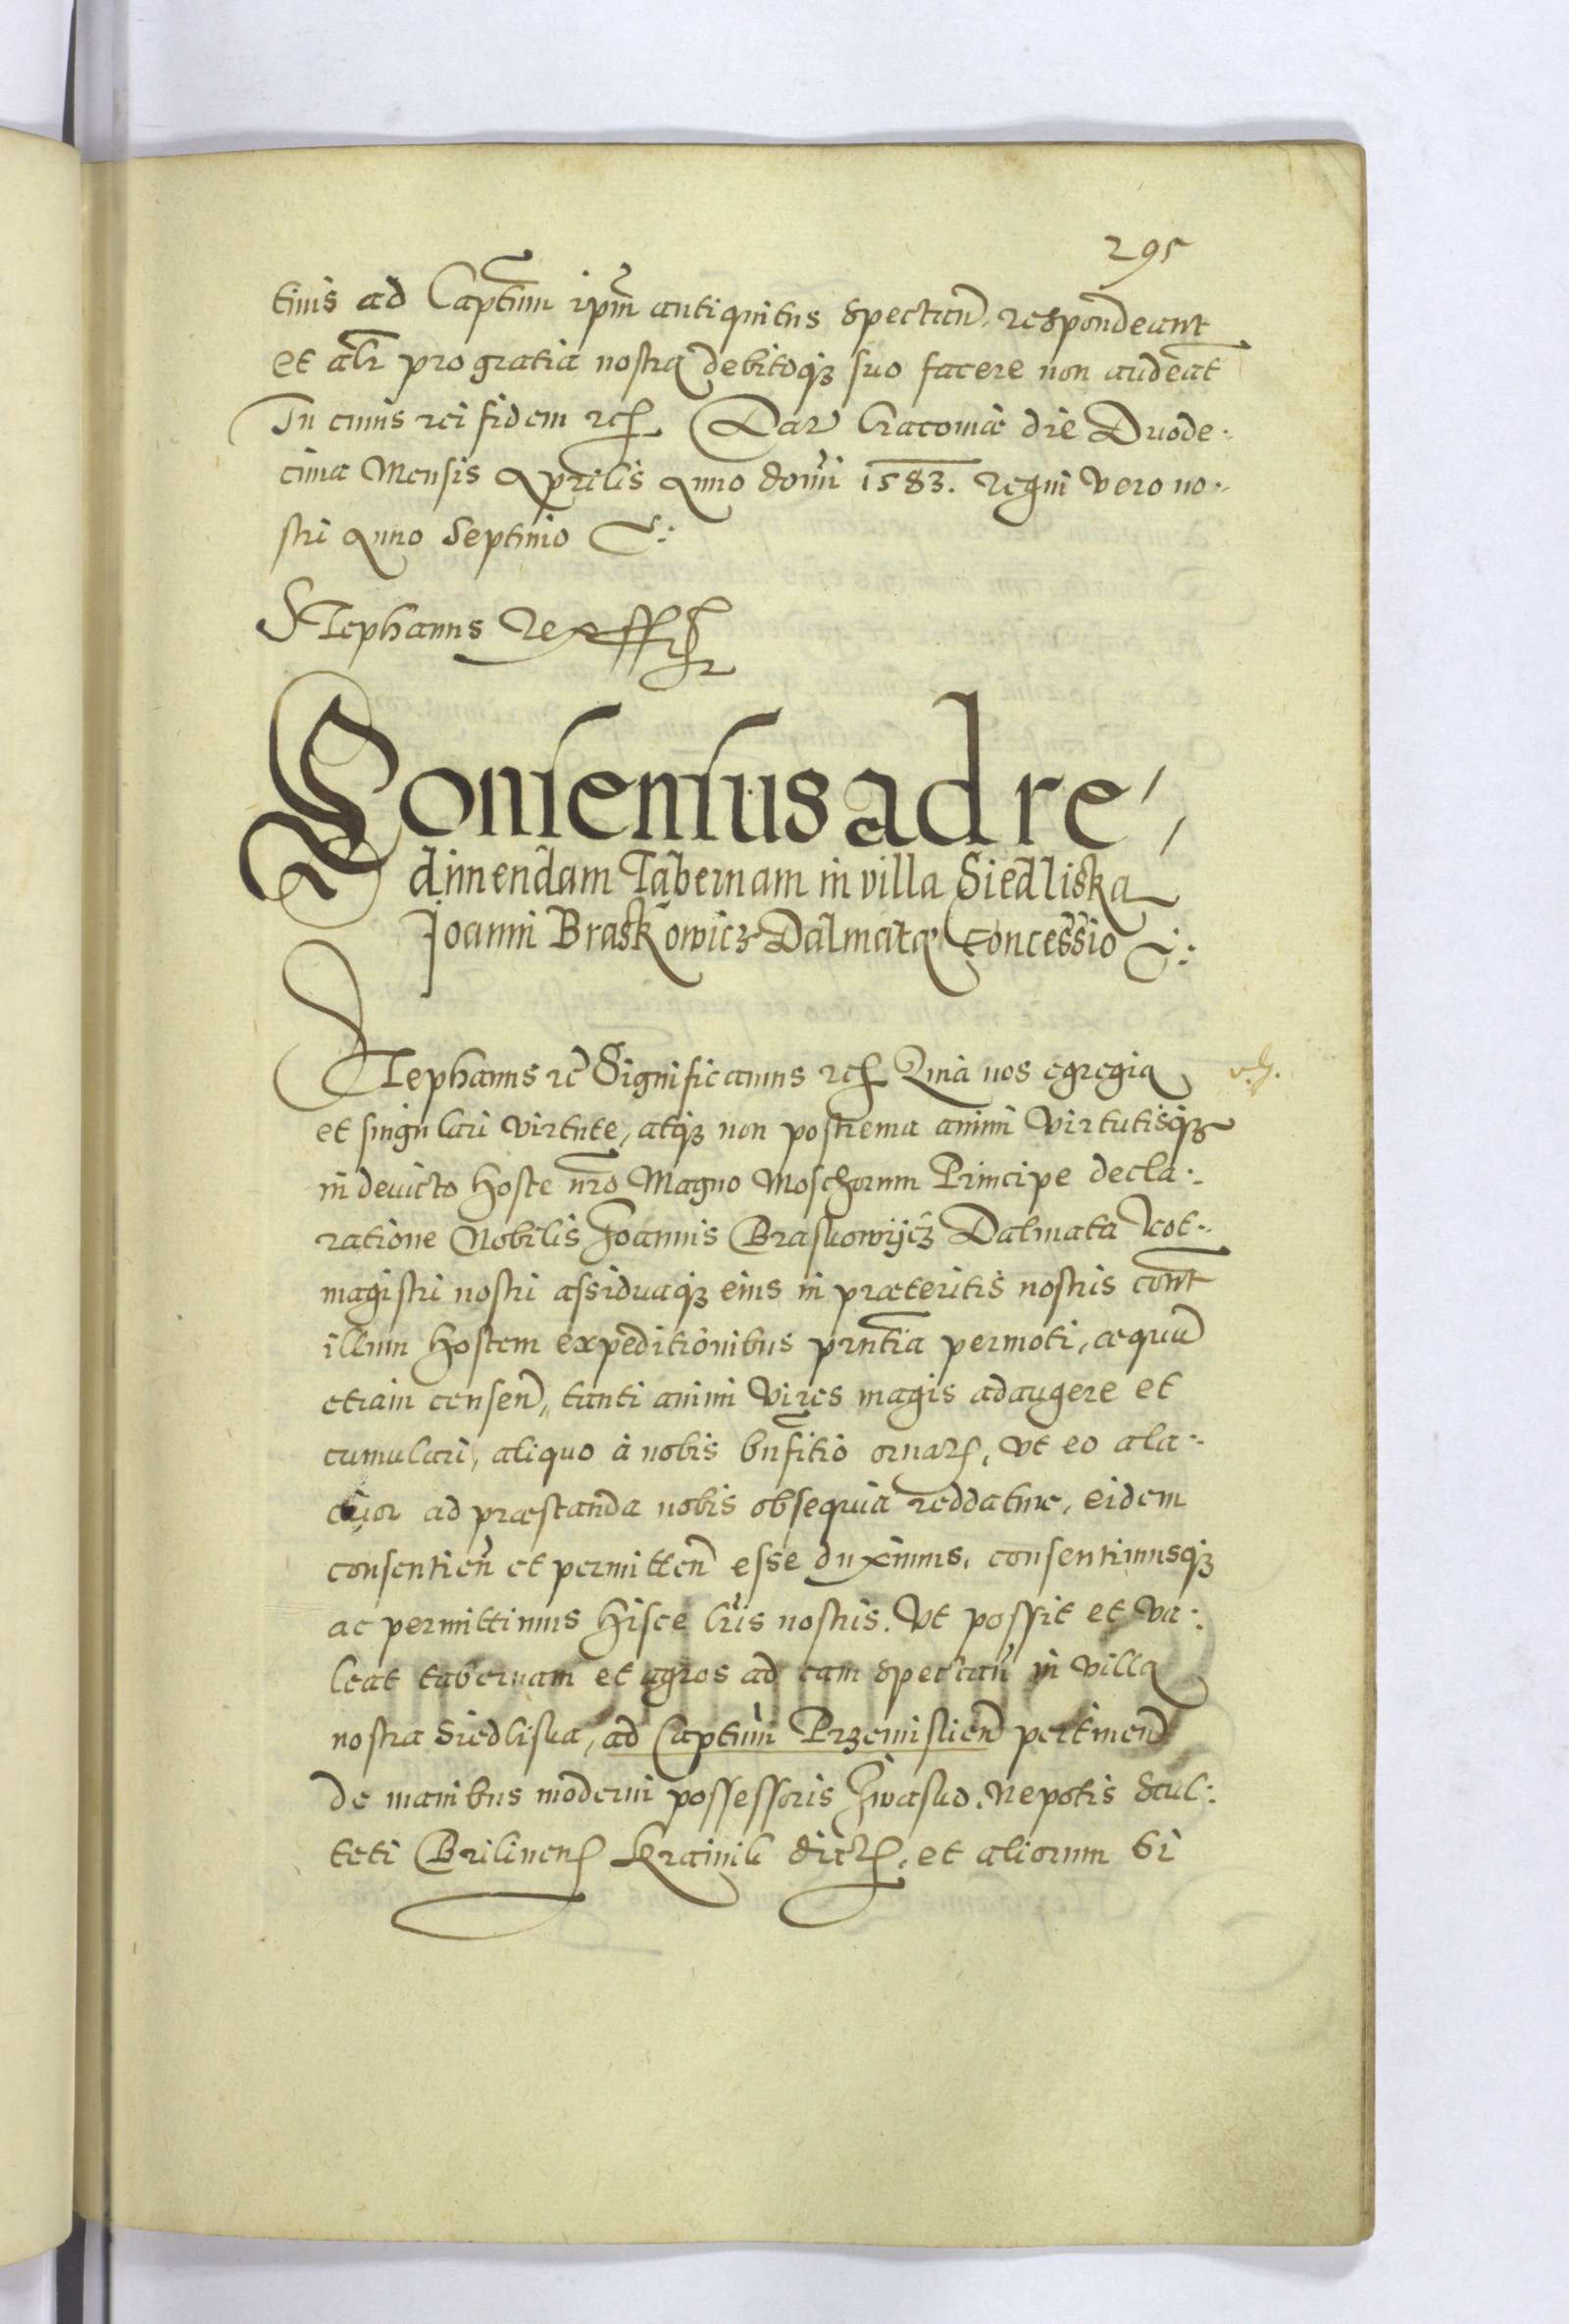 295
tiuis ad Captum ipm antiquitus spectan. respondeant
et alr pro gratia nostra debitoq3 suo facere non audeat
In cuius rei fidem rcz Dat Cracoviae die Duode.
cima Mensis Aprilis Anno domi 1583. Regni vero no.
stri Anno Septimo &.
Stephanus Rex
Consensus ad re,
dimendam Tabernam in villa Siedliska
Joanni Braskowicz Dalmatae Concessio &:
Stephanus rc Significamus rcz Quia nos egregia
et singulari virtute, atq3 non postrema animi virtutisq3
in deuicto hoste nro Magno Moschorum Principe decla:
ratione Nobilis Joannis Braskowijcz Dalmata Rot..
magistri nostri assiduaq3 eius in praeteritis nostris cont
illum hostem expeditionibus prntia permoti, aequu
etiam censen, tanti animi vires magis adaugere et
cumulari, aliquo à nobis bnfitio ornari, vt eo ala:
crior ad praestanda nobis obsequia reddatur, eidem
consentien et permitten esse duximus, consentimusq3
ac permittimus hisce lris nostris. Vt possit et va:
leat tabernam et agros ad eam spectan in villa
nostra Siedliska, ad Captum Przemislien pertinen
de manibus moderni possessoris Iwasko. Nepotis scul:
teti Brilincen Krainik dict, et aliorum si